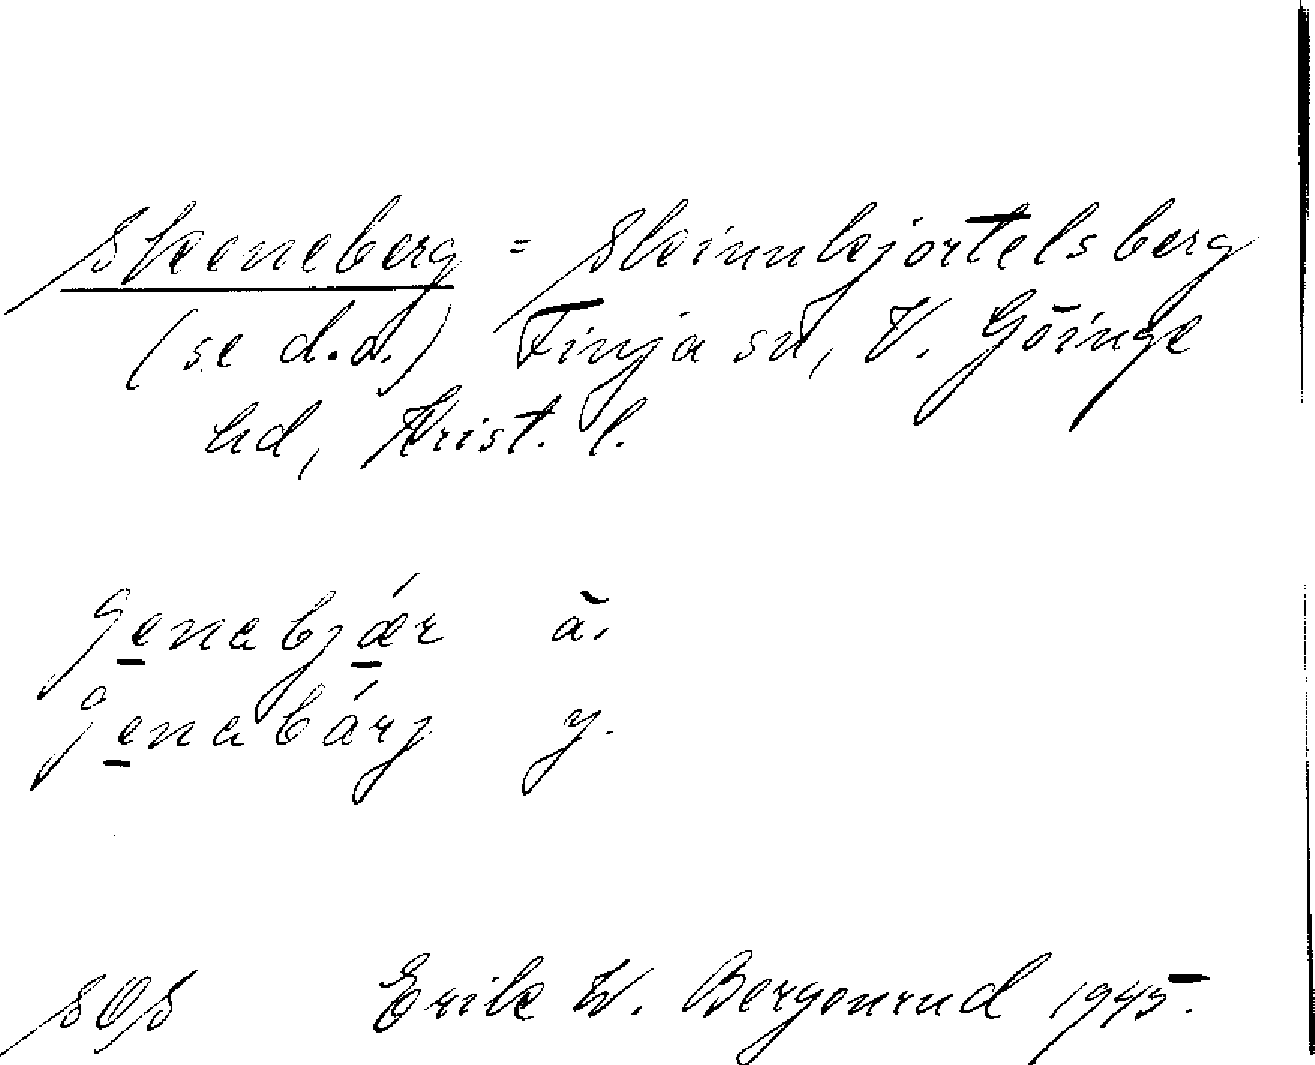 Skeneberg = Skinnkjortelsberg
(se d.o.) Finja sn, V. Göinge
hd, Krist. l.
ʃe̱nabjǽ̱r ä.
ʃe̱nabárj y.
SOS Erik W. Bergenrud 1945.